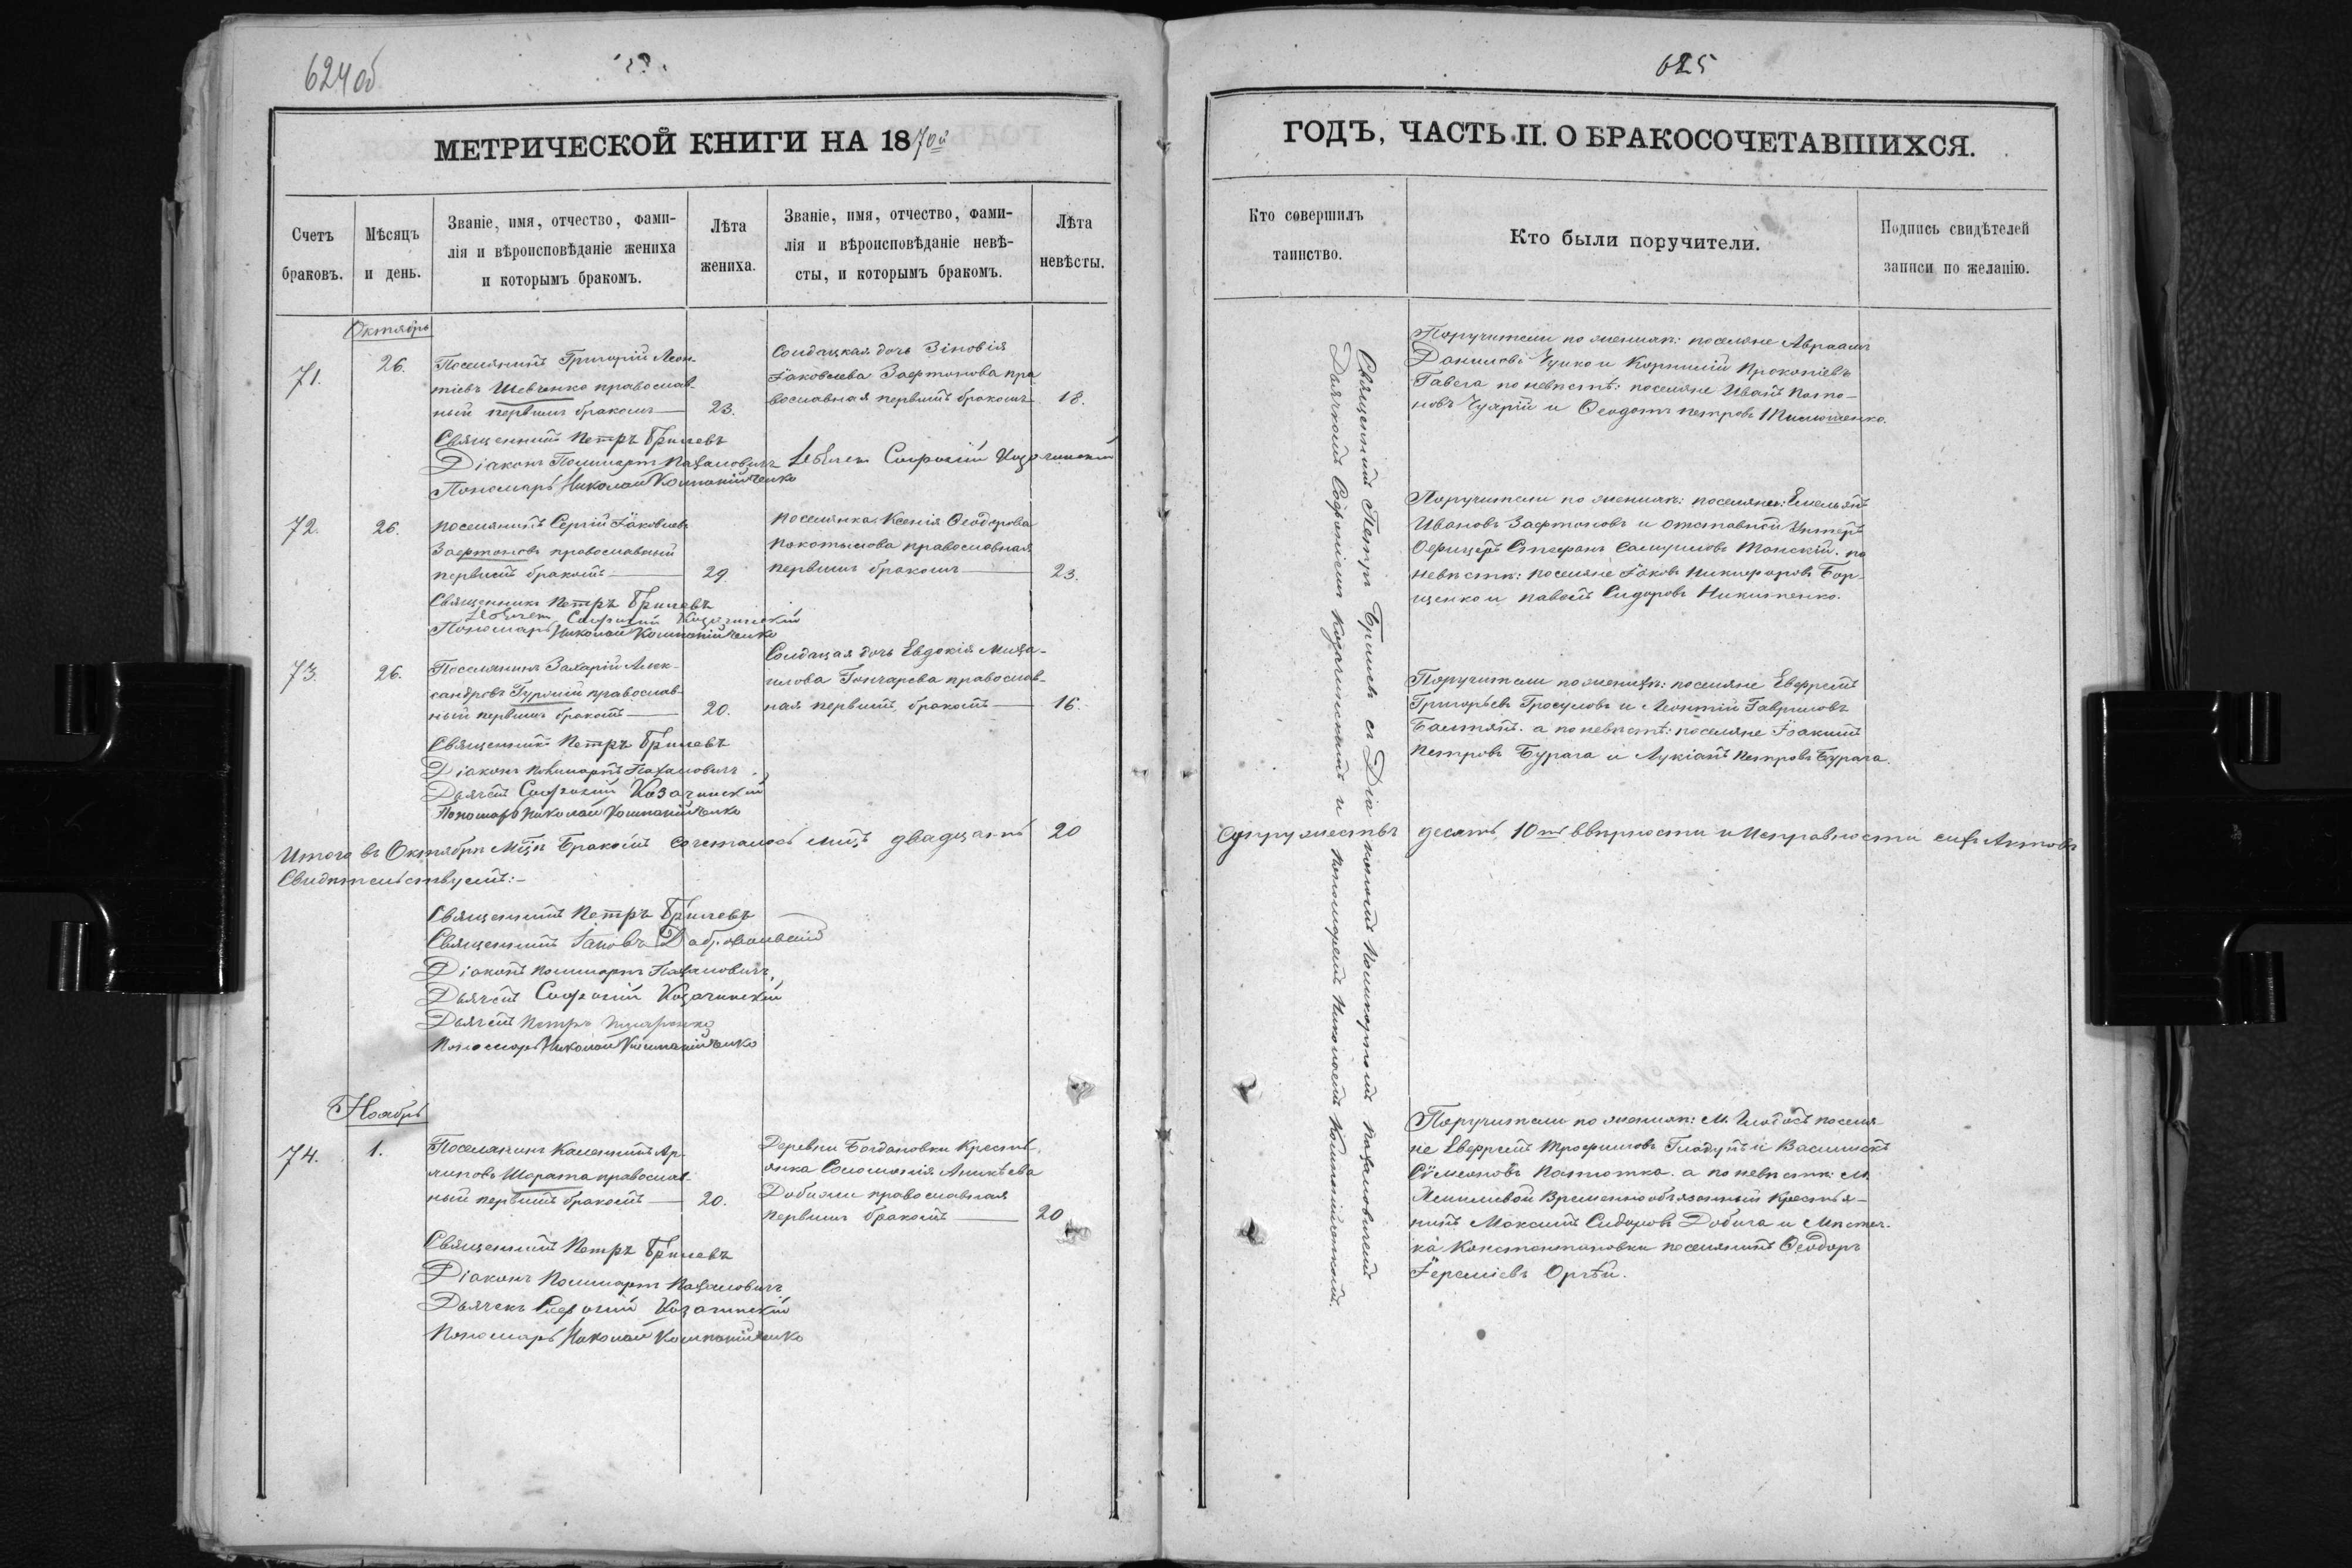 624об
625
МЕТРИЧЕСКОЙ КНИГИ НА 1870й
ГОДЪ, ЧАСТЬ II. О БРАКОСОЧЕТАВШИХСЯ.
Счетъ браковъ.
Мѣсяцъ и день.
Званіе, имя, отчество, фами-
лія и вѣроисповѣданіе жениха
и которымъ бракомъ.
Лѣта жениха.
Званіе, имя, отчество, фами-
лія и вѣроисповѣданіе невѣ-
сты, и которымъ бракомъ.
Лѣта невѣсты.
Кто совершилъ таинство.
Кто были поручители.
Подпись свидѣтелей
записи по желанію.
Октябрь
71.
26.
Поселянинъ Григорій Леон-
тіевъ Шевченко православ-
ный первымъ бракомъ
23.
Солдацкая дочь Зіновія
Іаковлева Заертонова пра
вославная первымъ бракомъ
18.
Поручители по женихѣ: поселяне Авраамъ
Даниловъ Чуико и Корнилій Прокопіевъ
Гавега по невѣстѣ: поселяне Иванъ
новъ и Ѳеодотъ Петровъ
Священникъ Петръ Брилевъ
Діаконъ Поликарпъ Пахаловичъ Дьячекъ Софроній Козачинскій
Пономарь Николай Компанійченко
72.
26.
Поселянинъ Сергій Іаковлевъ
Заертоновъ православный
первымъ бракомъ
29
Поселянка Ксенія Ѳеодорова
Покотылова православная
первымъ бракомъ
23.
Поручители по женихѣ: поселяне: Емельянъ
Ивановъ Заертоновъ и отставной Унтеръ
Офицеръ Стефанъ Самуиловъ Танскій. по
невѣстѣ: поселяне Іаковъ Никифоровъ Бор-
щенко и Павелъ Сидоровъ Никитенко.
Священникъ Петръ Брилевъ
Дьячекъ Софроній Козачинскій
Пономарь Николай Компанійченко
73.
26.
Поселянинъ Захарій Алек-
сандровъ Гурскій православ-
ный первымъ бракомъ
20.
Солдацая дочь Евдокія Миха-
илова Гончарева православ-
ная первымъ бракомъ
16.
Поручители по женихѣ: поселяне Евфремъ
Григорьевъ Гросуловъ и Леонтій Гавриловъ
а по невѣстѣ: поселяне Іоакимъ
Петровъ Бурага и Лукіанъ Петровъ Бурага.
Священникъ Петръ Брилевъ
Діаконъ Поликарпъ Пахаловичъ
Дьячекъ Софроній Козачинскій
Пономарь Николай Компанійченко
Итого въ Октябрѣ Мцѣ Бракомъ сочеталось лицъ двадцать 20
супружествъ десять 10ть вѣрности и Исправности сихъ Актовъ
Свидѣтельствуемъ:-
Священникъ Петръ Брилевъ
Священникъ Іаковъ
Діаконъ Поликарпъ Пахаловичъ,
Дьячекъ Софроній Козачинскій
Дьячекъ Петръ
Пономарь Николай Компанійченко
Священникъ Петръ Брилевъ съ Діакономъ Поликарпомъ Пахаловичемъ
Дьячкомъ Софроніемъ Козачинскимъ и пономаремъ Николаемъ Компанійченкомъ.
Ноябрь
74.
1.
Поселянинъ Калинникъ Ар-
иповъ Шарата православ-
ный первымъ бракомъ
20.
Деревни Богдановки Крестья
янка Соломонія Аникѣева
Добижи православная
первымъ бракомъ
20
Поручители по женихѣ: М. Глодосъ поселя
не Евфремъ Трофимовъ Гладунъ и Василискъ
Сѵмеоновъ а по невѣстѣ: М.
Временнообязанный крестья-
нинъ Максимъ Сидоровъ Добига и Мѣстеч-
ка Константиновки поселянинъ Ѳеодоръ
Іереміевъ
Священникъ Петръ Брилевъ
Діаконъ Поликарпъ Пахаловичъ
Дьячекъ Софроній Козачинскій
Пономарь Николай Компанійченко